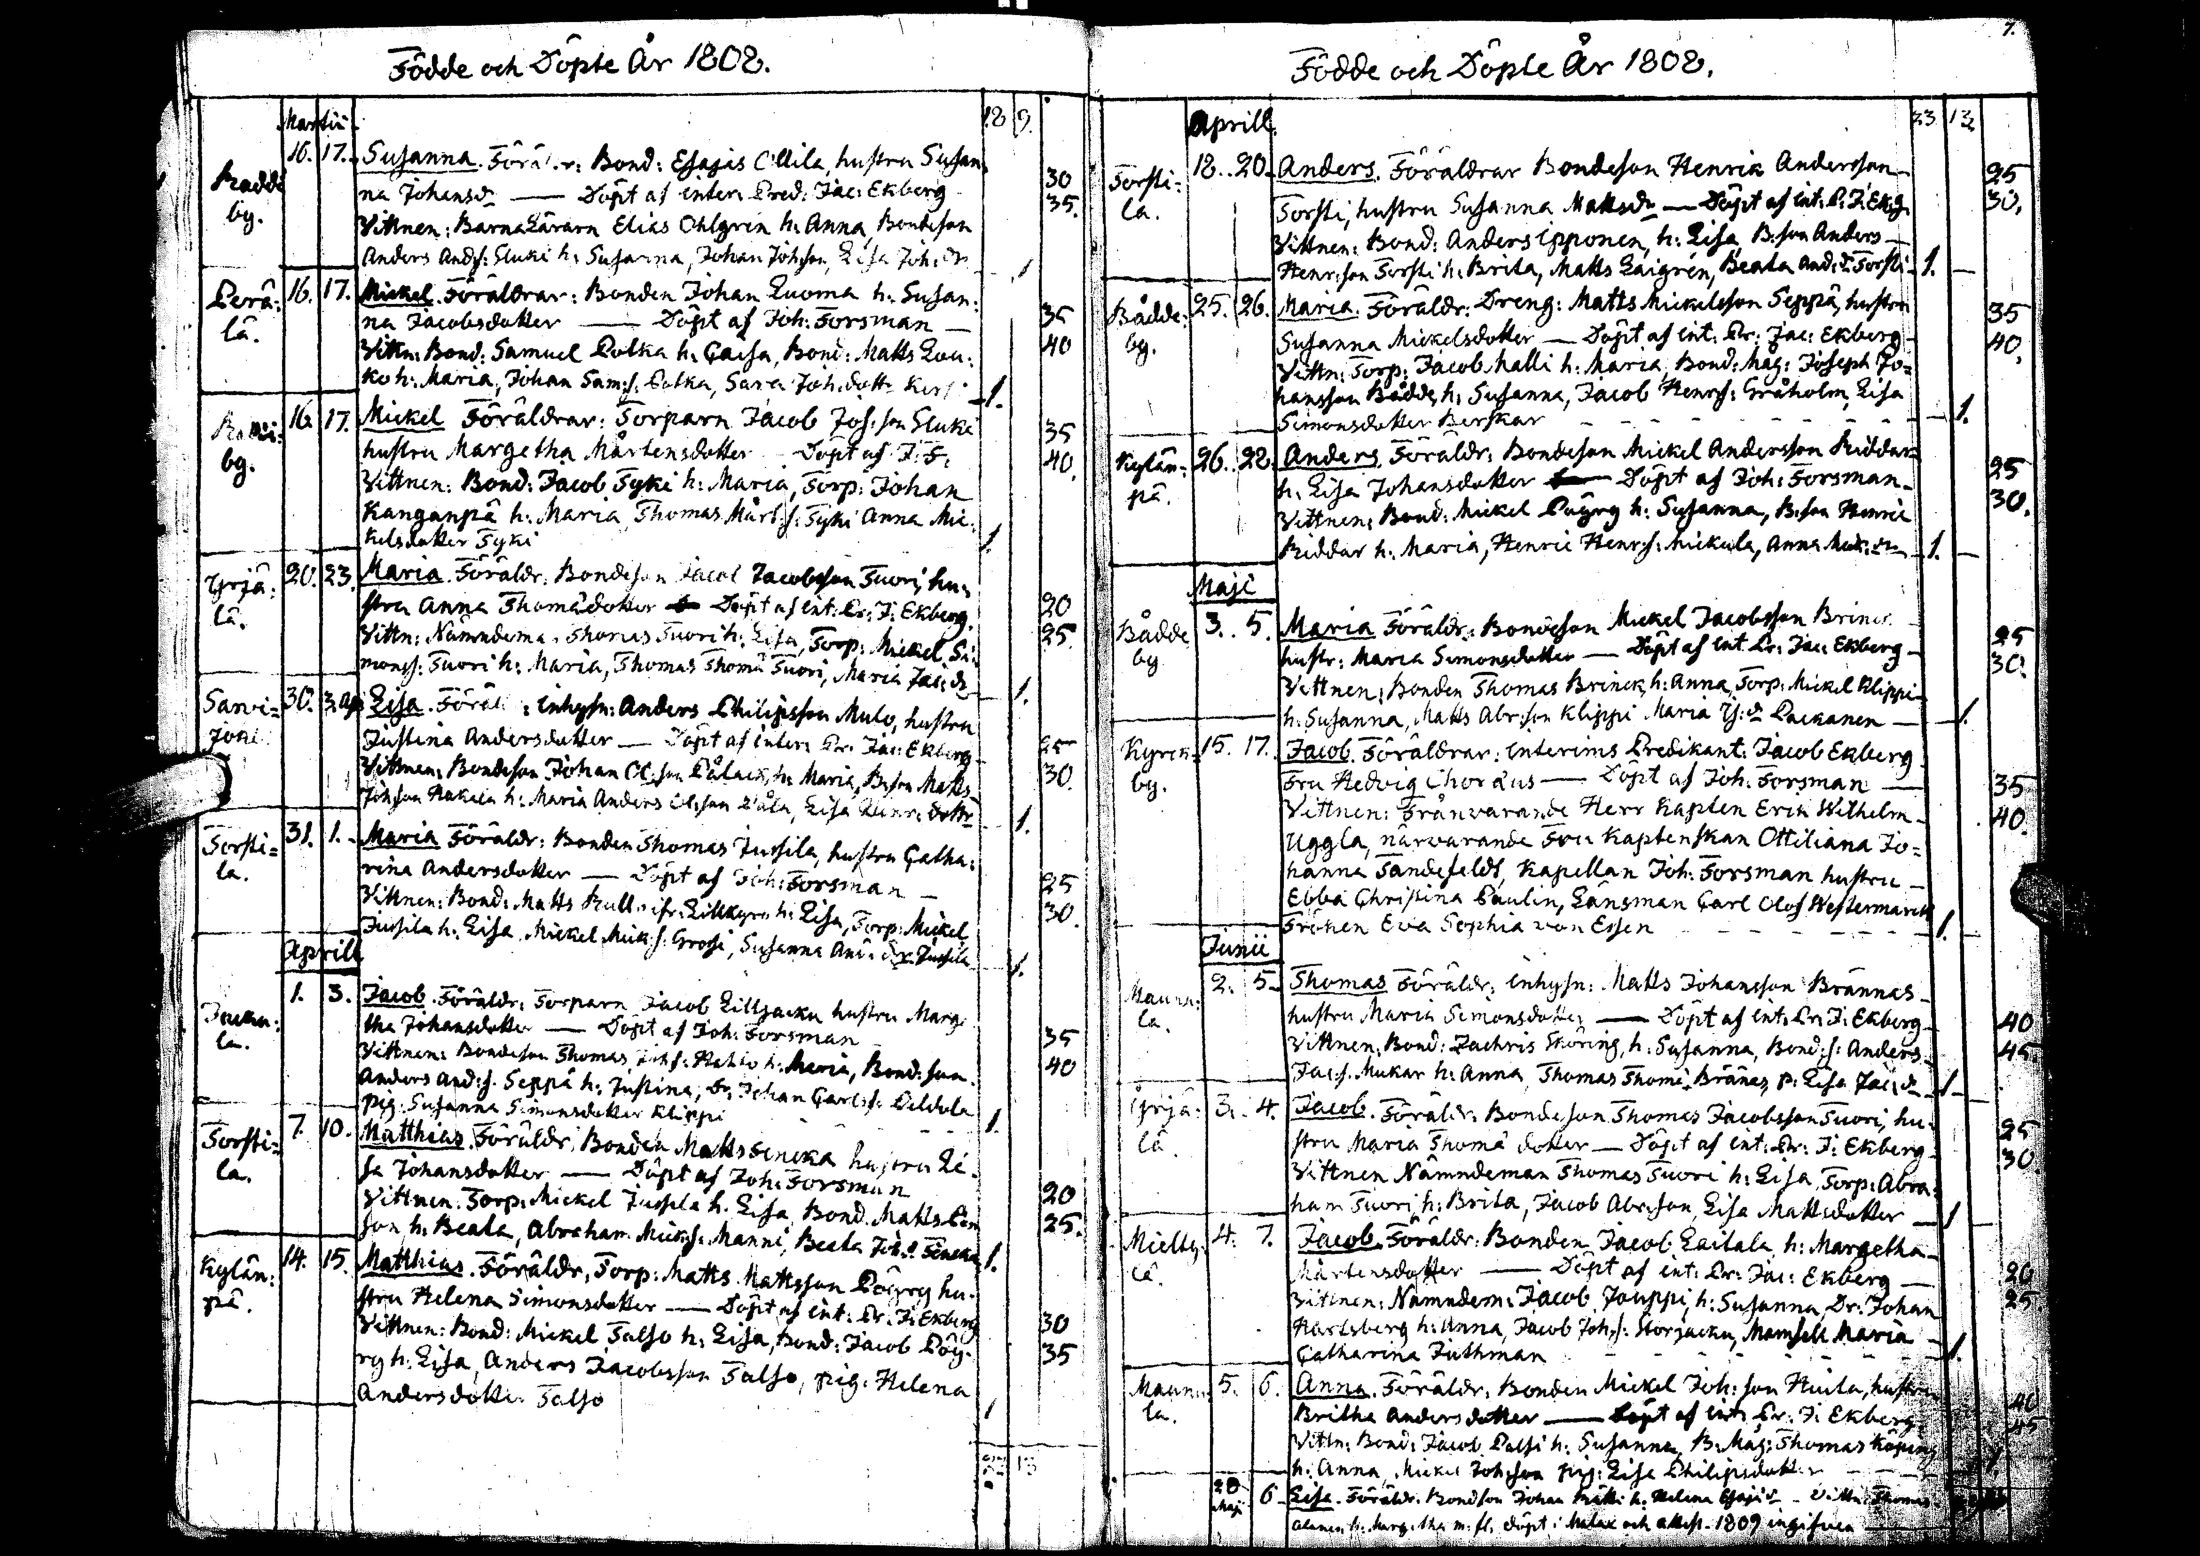 Födde och Döpte År 1808.
Martii 18 9.
Radde by. 16. 17. Susanna. Föräl.r: Bond: Esajas Ollila, hustru Susan-
na Johansd. — Döpt af inter. Pred: Jac: Ekberg 30
Vittnen: BarnaLärarn Elias Ohlgrén h: Anna, Bondeson 35.
Anders And:s: Sluki h: Susanna, Johan Joh:son, Lisa Joh: dr 1
Perä: lä. 16. 17. Mickel. Föräldrar: Bonden Johan Luoma h: Susan:
na Jacobsdotter — Döpt af Joh: Forsman — 35
Vittn: Bond: Samuel Polka h: Caisa, Bond: Matts Lou: 40
ko h: Maria, Johan Sam:s: Polka, Sara Joh:dottr 1.
by. 16. 17. Mickel Föräldrar: Torparn Jacob Jos:son Sluki 35
hustru Margetha Mårtensdotter Döpt af J: F: 40.
Vittnen: Bond: Jacob Fyki h: Maria, Torp: Johan
Kanganpä h: Maria, Thomas Mårt:s: Fyki Anna Mic:
kelsdotter Fyki 1.
Yrjä: lä. 20. 23. Maria. Föräldr. Bondeson Jacob Jacobsson Tuori, hu-
stru Anna Thomädotter Döpt af int: Pr: J: Ekberg. 20
Vittn: Nämndeman Thomas Tuori h: Lisa, Torp: Mickel Si- 25.
mons: Tuori h: Maria, Thomas Thomä Tuori, Maria Jac: dr 1.
Sarvi= joki 30. 3. Ap. Lisa. Föräl : inhysn: Anders Philipsson Mulo, hustru
Justina Andersdotter — Döpt af inter: Pr: Jac: Ekberg 25
Vittnen: Bondeson Johan Ol:son Pålack, h: Maria, B:son Matts 30.
Joh:son Hakala h: Maria Anders Ol:son Påla, Lisa Henr: dottr 1.
Torsti= la. 31. 1. Maria Föräldr: Bonden Thomas Jussila, hustru Catha:
rina Andersdotter — Döpt af Joh: Forsman — 25
Vittnen: Bond: Matts ifr: Lillkyro h: Lisa, Torp: Mickel 30.
Jussila h: Lisa, Mickel Mick:s: Grossi, Susanna And: dr Jussila 1.
Aprill
la. 1. 3. Jacob. Föräldr: Torparn Jacob Lilljacku hustru Marge
tha Johansdotter — Döpt af Joh: Forsman 35
Vittnen: Bondeson Thomas Joh:s: h: Maria, Bond:son. 40
Anders And:s: Seppä h: Justina, Dr: Johan Carls:s: Peldola
pig: Susanna Simonsdotter Klippi 1.
Torsti= la. 7. 10. Matthias. Föräldr: Bonden Matts hustru Li-
sa Johansdotter — Döpt af Joh: Forsman 20
Vittnen: Torp: Mickel Jussila h: Lisa, Bond. Matts 25.
son h: Beata, Abraham Mick:s: Manni, Beata Joh:d. 1.
Kylän: pä. 14. 15. Matthias. Föräldr, Torp: Matts Mattsson Pöyry hu-
stru Helena Simonsdotter — Döpt af int: Pr: J: Ekberg 30
Vittnen: Bond: Mickel Talso h: Lisa, Bond: Jacob Pöy- 35
ry h: Lisa, Anders Jacobsson Talso, pig: Helena
Andersdotter Talso 1
23 13
7.
Födde och Döpte År 1808.
Aprill. 23 13
Torsti= la. 18. 20. Anders. Föräldrar Bondeson Henric Andersson 25
Torsti, hustru Susanna Mattsdr — Döpt af int: P: J: Ekbg. 30.
Vittnen: Bond: Anders Ipponen, h: Lisa, B:son Anders
Henr:son Torsti h: Brita, Matts Laigrén, Beata And:d. Torsti 1.
Bådde: by. 25. 26. Maria. Föräldr: Dreng: Matts Mickelsson Seppä, hustru 35
Susanna Mickelsdotter — Döpt af int: Pr: Jac: Ekberg 40.
Vittn: Torp: Jacob Malli h: Maria, Bond: Måg: Joseph Jo=
hansson Bådde, h: Susanna, Jacob Henr:s: Gråholm, Lisa
Simonsdotter Berskar 1.
Kylän: pä. 26. 28. Anders. Föräldr: Bondeson Mickel Andersson Riddar 25
h: Lisa Johansdotter Döpt af Joh: Forsman 30.
Vittnen: Bond: Mickel Pöyry h: Susanna, B:son Henric
Riddar h: Maria, Henric Henr:s: Mickula, Anna Mick: dr 1.
Maji
Bådde by 3. 5. Maria Föräldr: Bondeson Mickel Jacobsson Brinck
hustr: Maria Simonsdotter — Döpt af int. Pr: Jac: Ekberg 25
Vittnen: Bonden Thomas Brinck, h: Anna, Torp: Mickel Klippi 30.
h: Susanna, Matts Abr:son Klippi Maria Packanen 1.
Kyrck= by. 15. 17. Jacob. Föräldrar: interims Predikant: Jacob Ekberg
Fru Hedvig Choræus — Döpt af Joh. Forsman 35
Vittnen: Frånvarande Herr Kapten Eric Wilhelm 40.
Uggla, närvarande Fru Kaptenskan Ottiliana Jo=
hanna Tandefeldt, Kapellan Joh: Forsman hustru
Ebba Christina Paulin, Länsman Carl Olof Westermarck
Fröken Eva Sophia von Essen 1.
Junii
Maunu: la. 2. 5. Thomas Föräldr: inhysn: Matts Johansson Brännas
hustru Maria Simonsdotter — Döpt af int: Pr: J: Ekberg 40
Vittnen, Bond: Zachris Skäring, h: Susanna, Bond:s: Anders 45
Jac:s. Mukar h: Anna, Thomas Thomä Bränas, p: Lisa Jac: dr 1
Yrjä: lä 3. 4. Jacob. Föräldr: Bondeson Thomas Jacobsson Tuori, hu-
stru Maria Thomä dotter — Döpt af int: Pr: J: Ekberg 25
Vittnen Nämndeman Thomas Tuori h: Lisa, Torp: Abra: 30
ham Tuori, h: Brita, Jacob Abr:son, Lisa Mattsdotter 1
Mielty: lä. 4. 7. Jacob. Föräldr: Bonden Jacob Laitala, h: Margetha
Mårtensdotter — Döpt af int: Pr: Jac: Ekberg 20
Vittnen: Nämndem: Jacob Jouppi, h: Susanna, Dr: Johan 25
Hartsberg h: Anna, Jacob Joh:s: Storjacku, Mamsell Maria
Catharina Juthman 1.
Maunu: la. 5. 6. Anna. Föräldr: Bonden Mickel Joh:son Huila, hustru 40
Britha Andersdotter — Döpt af int: Pr: J: Ekberg 45
Vittn: Bond: Jacob Palsi h: Susanna, B: Måg: Thomas Köping
h: Anna, Mickel Joh:son pig: Lisa Philipsdotter 1.
20 Maji 6 Lisa. Föräldr. Bondson Johan h: Helena Esaiæ d. Vittn: Thomas
h. Marg:tha m: fl. döpt i Malax och attest. 1809 ingifven